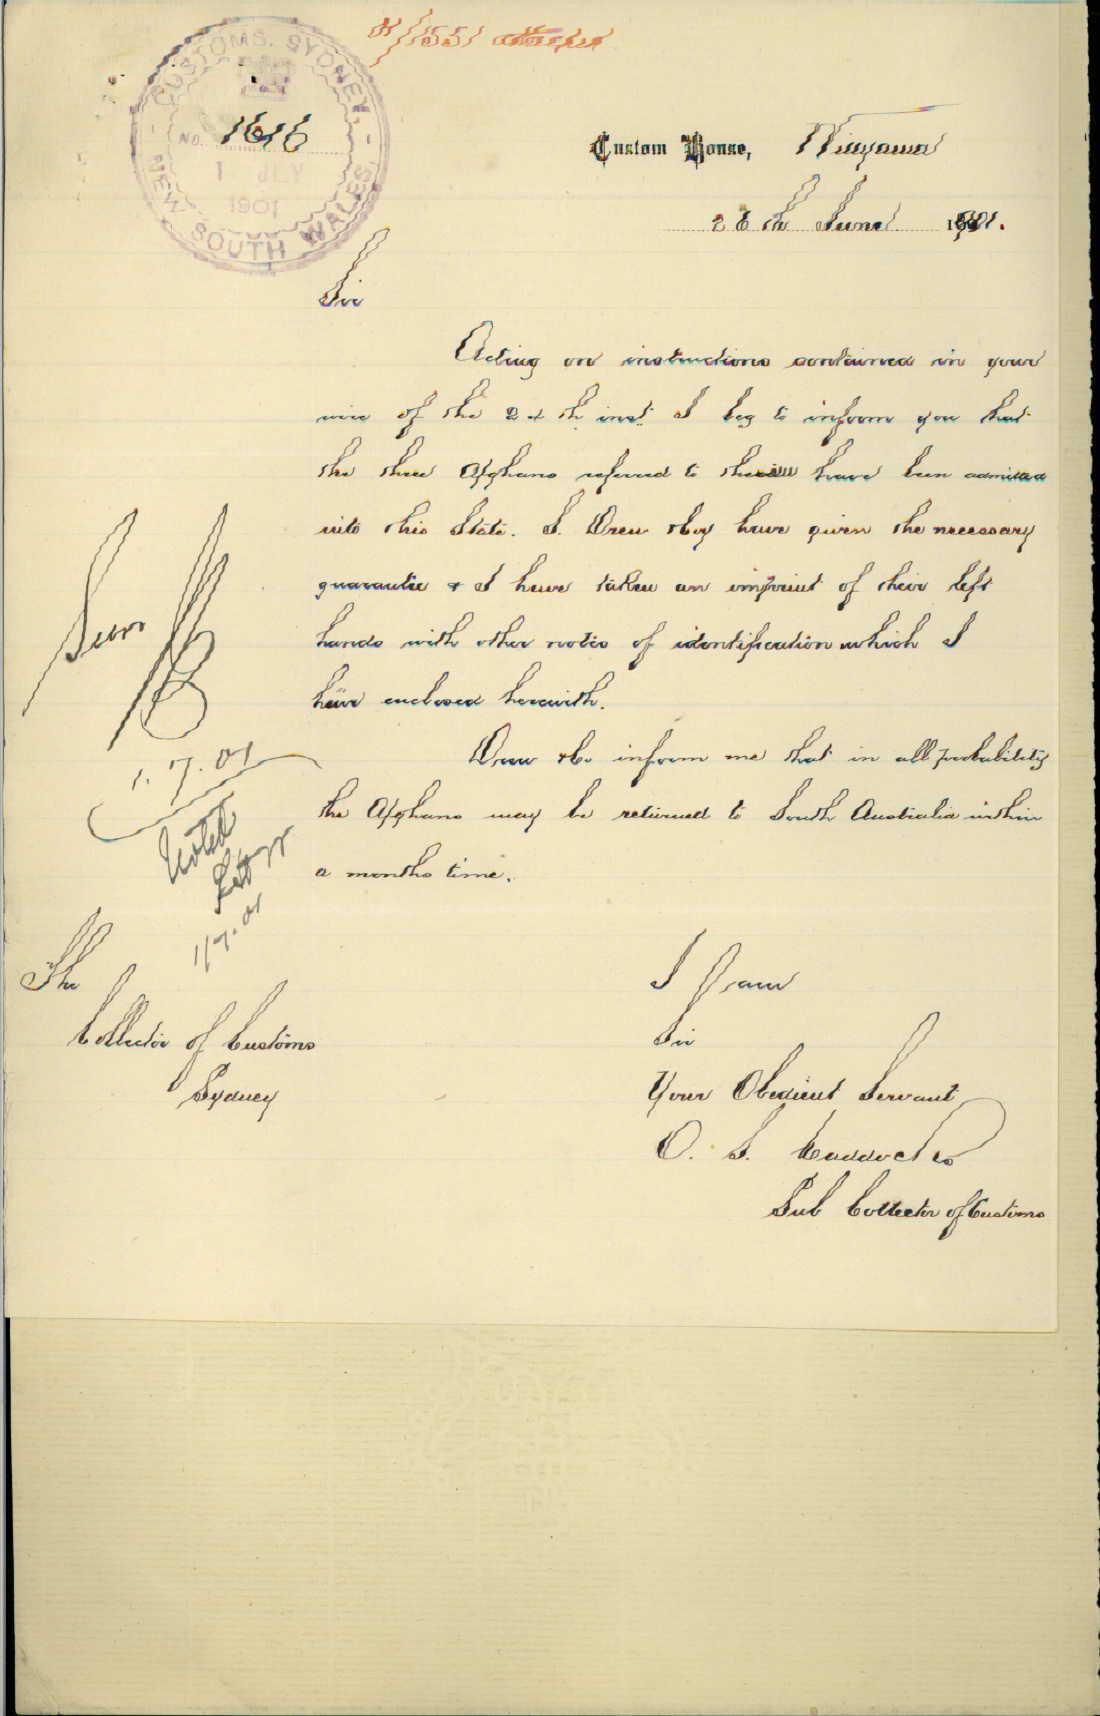 CUSTOMS. SYDNEY.
NEW SOUTH WALES
No. 1616
1 JLY
1901
01/1551
Custom House,
28th June 1901.
Sir
Acting on instructions contained in your
wire of the 24th inst. I beg to inform you that
the three Afghans referred to therein have been admitted
into this State. I. Drew Roy have given the necessary
guarantee & I have taken an imprint of their left
hands with other notes of identification which I
have enclosed herewith.
Drew &Co inform me that in all probability
the Afghans may be returned to South Australia within
a months time.
Seen
1.7.01
Noted
1/7.01
The
Collector of Customs
Sydney
I am
Sir
Your Obedient Servant
O. S. Maddocks
Sub Collector of Customs